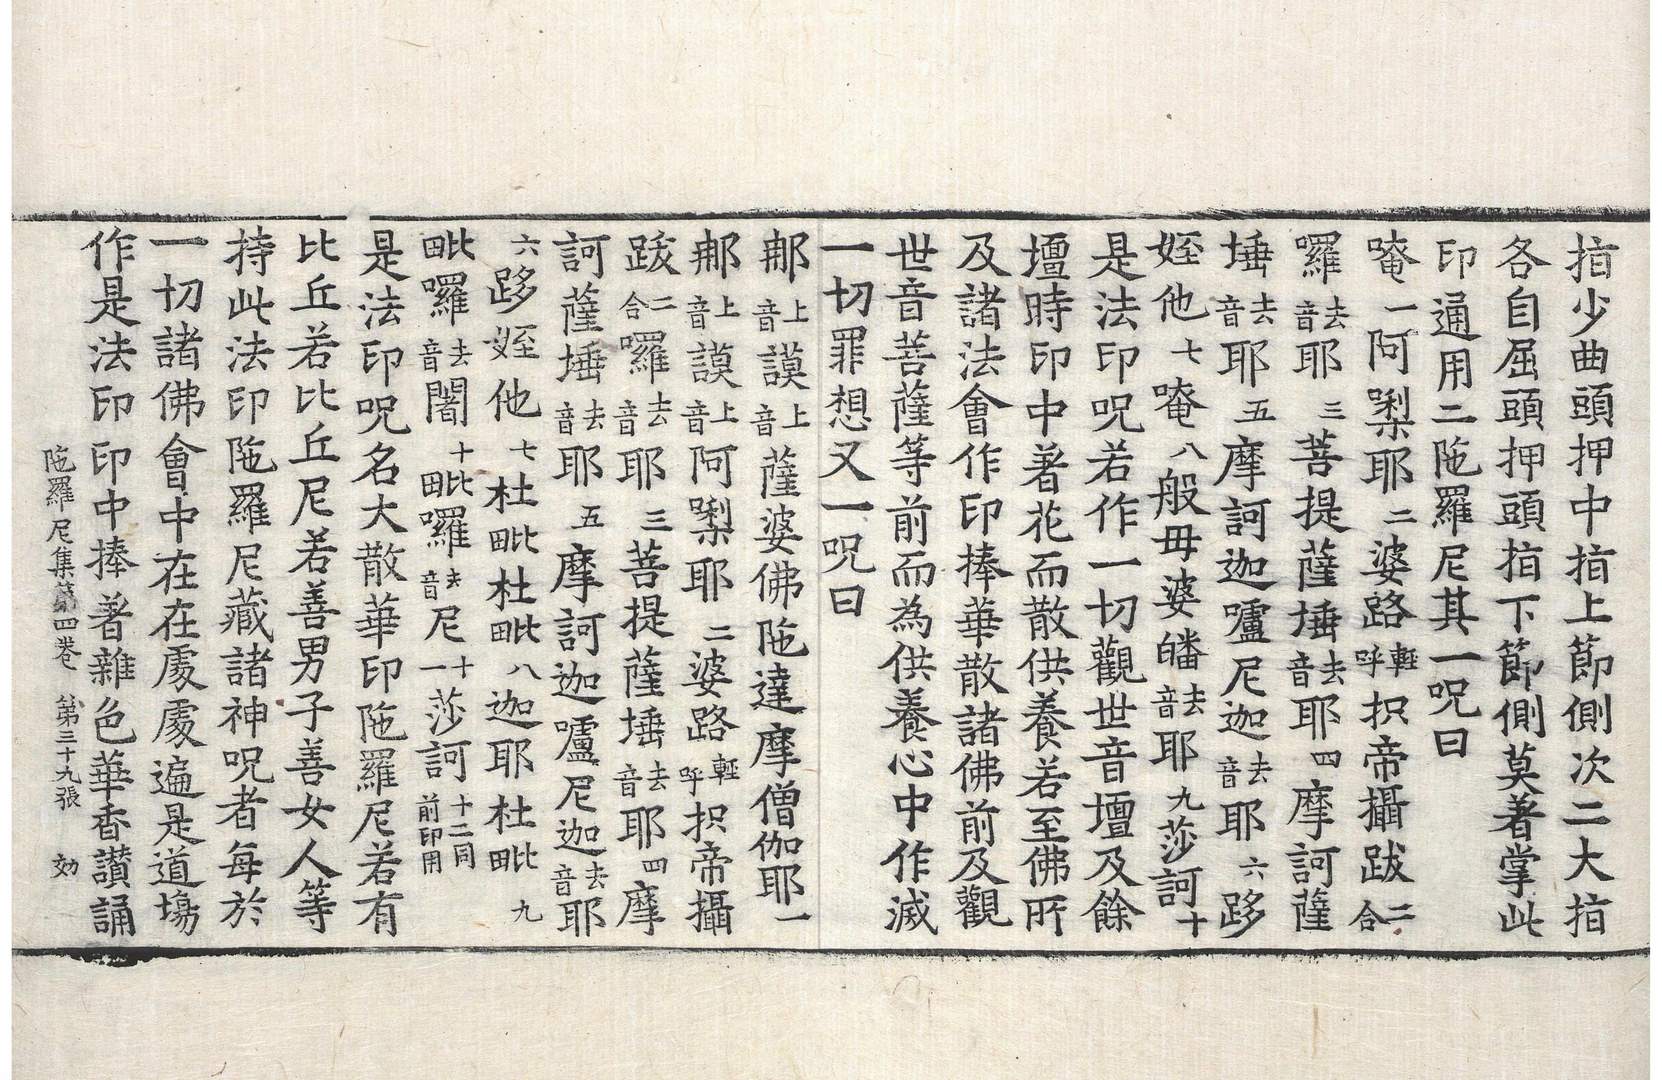 指少曲頭押中指上節側次二大指
各自屈頭押頭指下節側莫著掌此
印通用二陁羅尼其一呪曰
唵一阿㗚耶二婆路輕呼抧帝攝跋二合
羅去音耶三菩提薩埵去音耶四摩訶薩
埵去音耶五摩訶迦嚧尼迦去音耶六跢
姪他七唵八般毋婆皤去音耶九莎訶十
是法印呪若作一切觀世音壇及餘
壇時印中著花而散供養若至佛所
及諸法會作印捧華散諸佛前及觀
世音菩薩等前而為供養心中作滅
一切罪想又一呪曰
那上音謨上音薩婆佛陁達摩僧伽耶一
那上音謨上音阿㗚耶二婆路輕呼抧帝攝
跋二合囉去音耶三菩提薩埵去音耶四摩
訶薩埵去音耶五摩訶迦嚧尼迦去音耶
六跢姪他七杜毗杜毗八迦耶杜毗九
毗囉去音闍十毗囉去音尼十一莎訶十二同前印用
是法印呪名大散華印陁羅尼若有
比丘若比丘尼若善男子善女人等
持此法印陁羅尼藏諸神呪者每於
一切諸佛會中在在處處遍是道場
作是法印印中捧著雜色華香讃誦
陁羅尼集第四卷 第三十九張 効